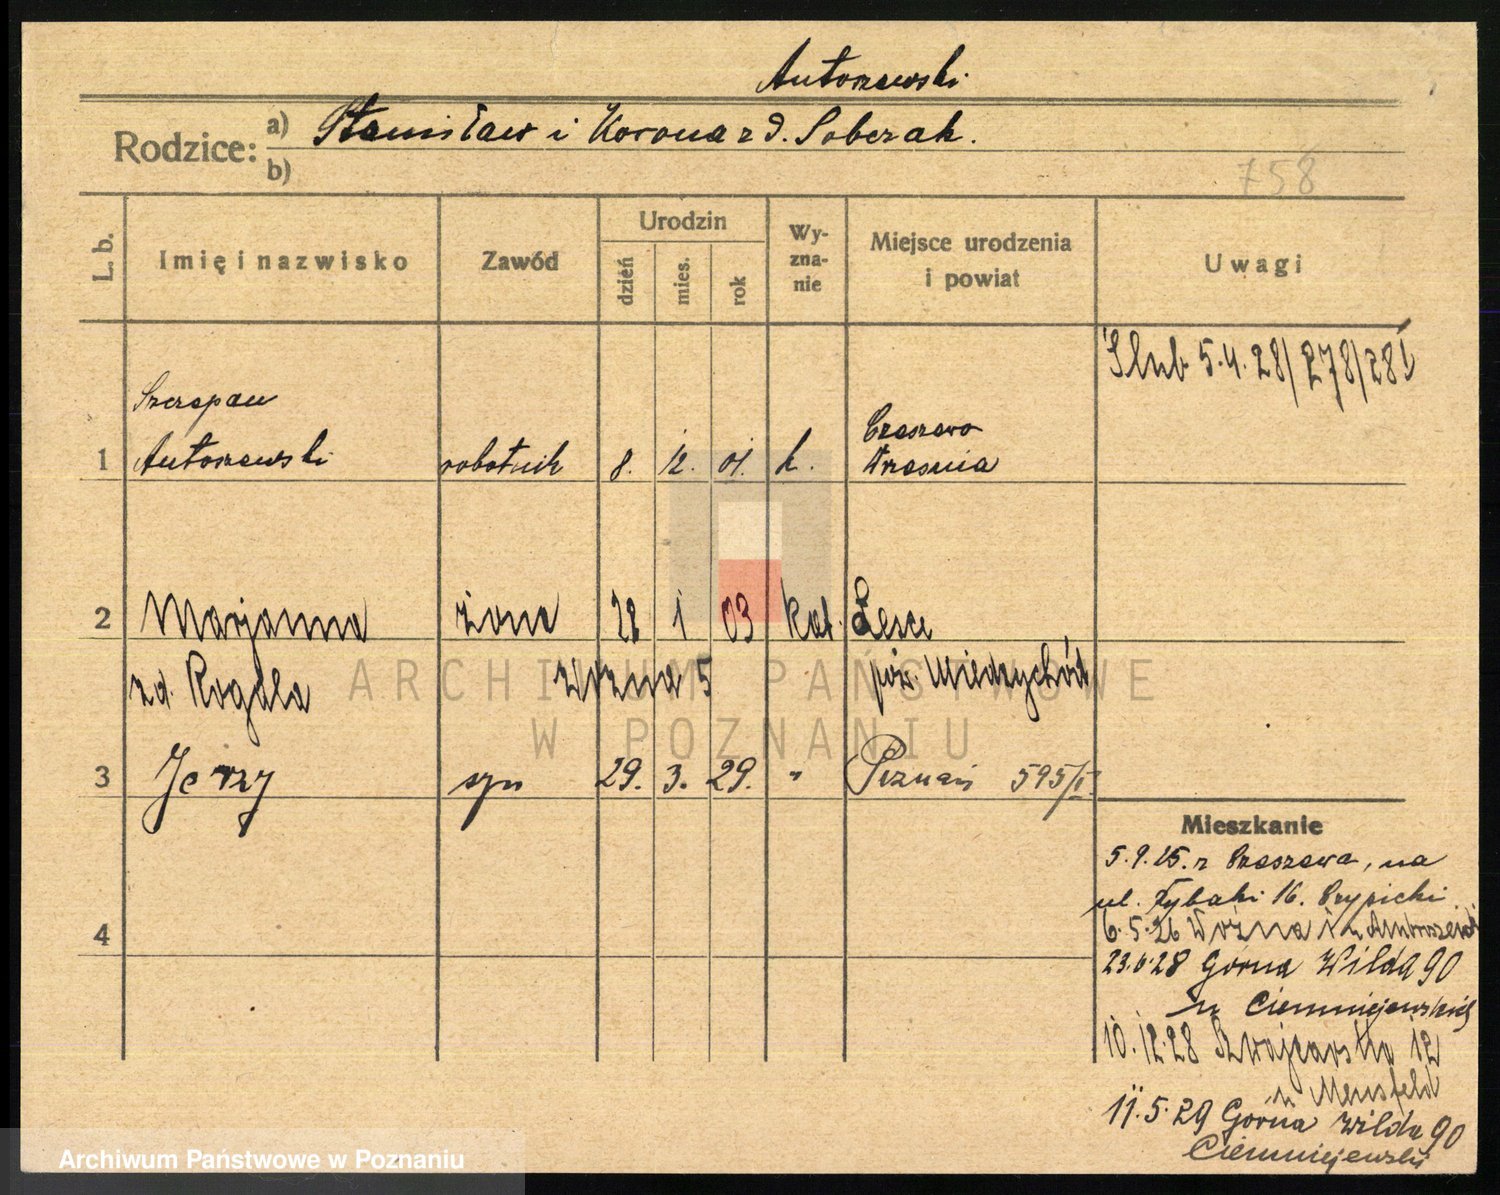 Antoszewski
Rodzice: a) Stanisław i Korona z d. Sobczak.
b)
758
L. b.
Imię i nazwisko
Zawód
Urodzin
dzień
mies.
rok
Wy-
zna-
nie
Miejsce urodzenia
i powiat
Uwagi
Ślub 5.4.28/278/281
Szczepan
1 Antoszewski robotnik 8. 12. 01. k.
Czeszewo
Września
2 Marjanna żona 28 1 03 kat.
zd. Rogala Woźna 5 pow. Międzychód
3 Jerzy syn 29. 3. 29. " Poznań 595/I
4
Mieszkanie
5.9.25. z Czeszewa, na
ul. Rybaki 16.
6.5.26 Woźna
23.6.28 Górna Wilda 90
u Ciemniejewskiej
10.12.28 Szwajcarska 12
u Mensfeld
11.5.29 Górna Wilda 90
Ciemniejewski
ARCHIWUM PAŃSTWOWE
W POZNANIU
Archiwum Państwowe w Poznaniu